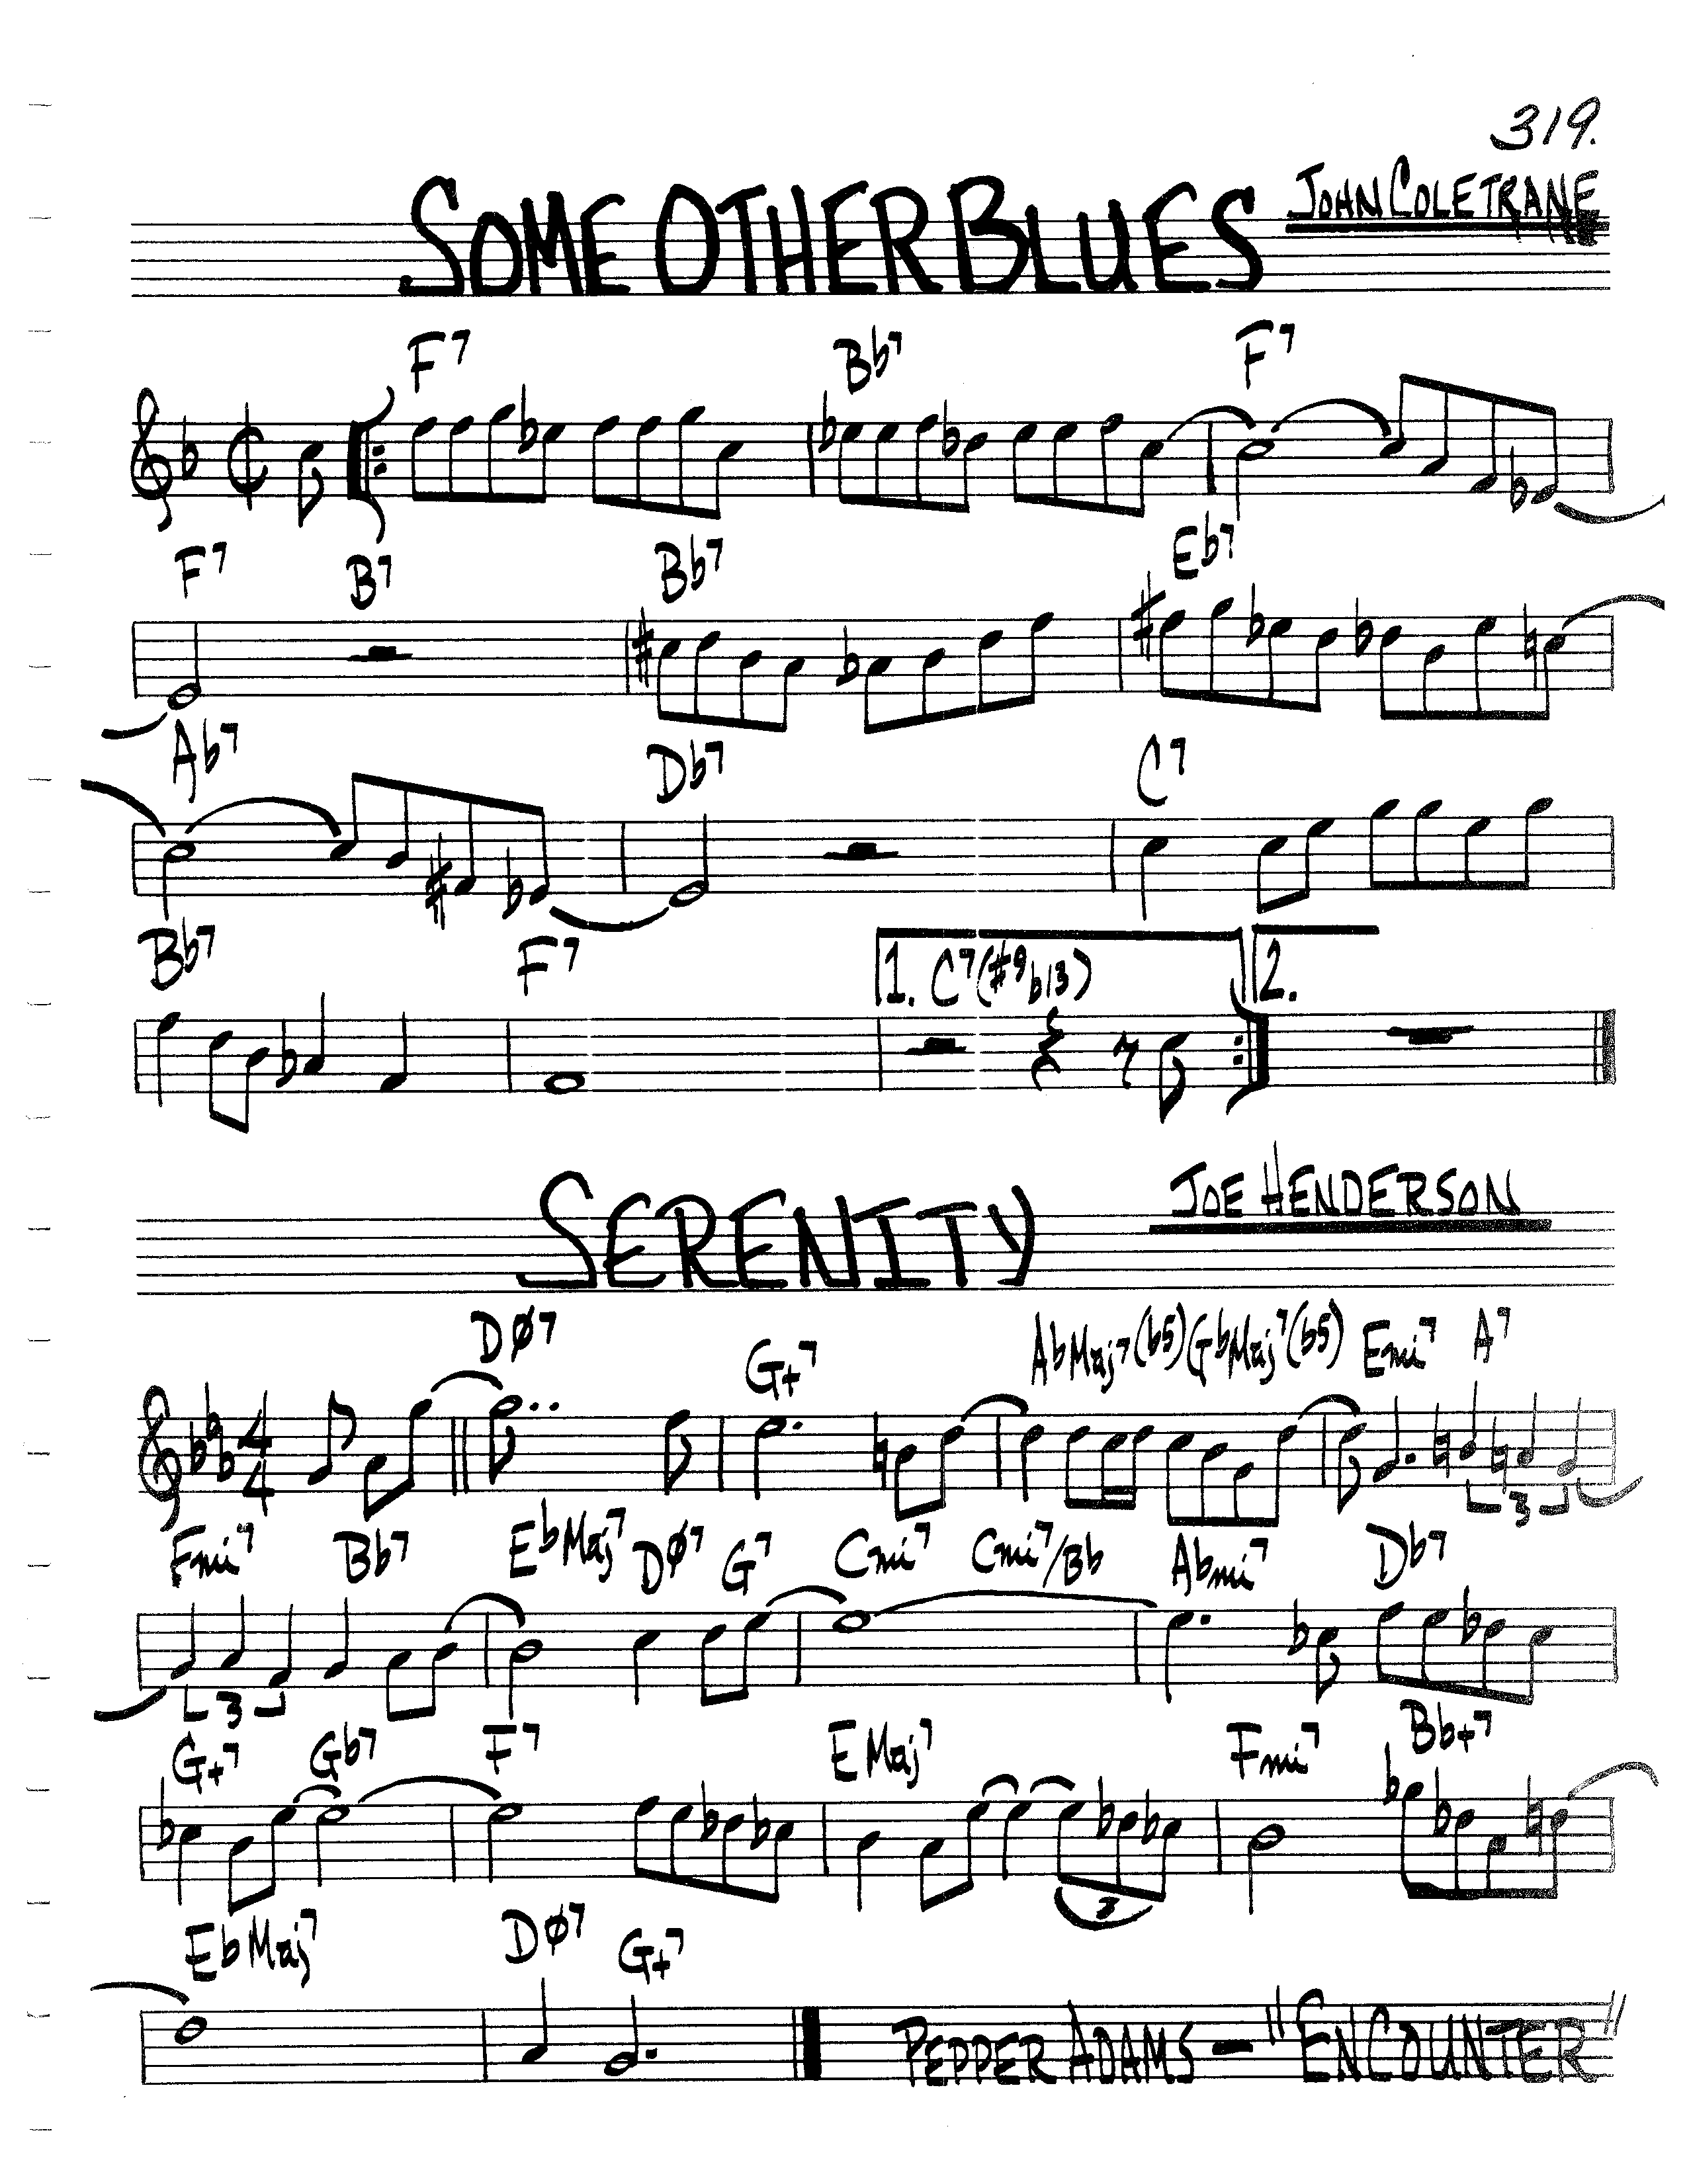 319.
SOME OTHER BLUES
JOHN COLETRANE
F7 Bb7 F7
F7 B7 Bb7 Eb7
Ab7 Db7 C7
Bb7 F7 1. C7(#9b13) 2.
SERENITY
JOE HENDERSON
DØ7 G+7 AbMaj7(b5) GbMaj7(b5) Emi7 A7
4
4
3
Fmi7 Bb7 EbMaj7 DØ7 G7 Cmi7 Cmi7/Bb Abmi7 Db7
3
G+7 Gb7 F7 EMaj7 Fmi7 Bb+7
3
EbMaj7 DØ7 G+7
PEPPER ADAMS - "ENCOUNTER"